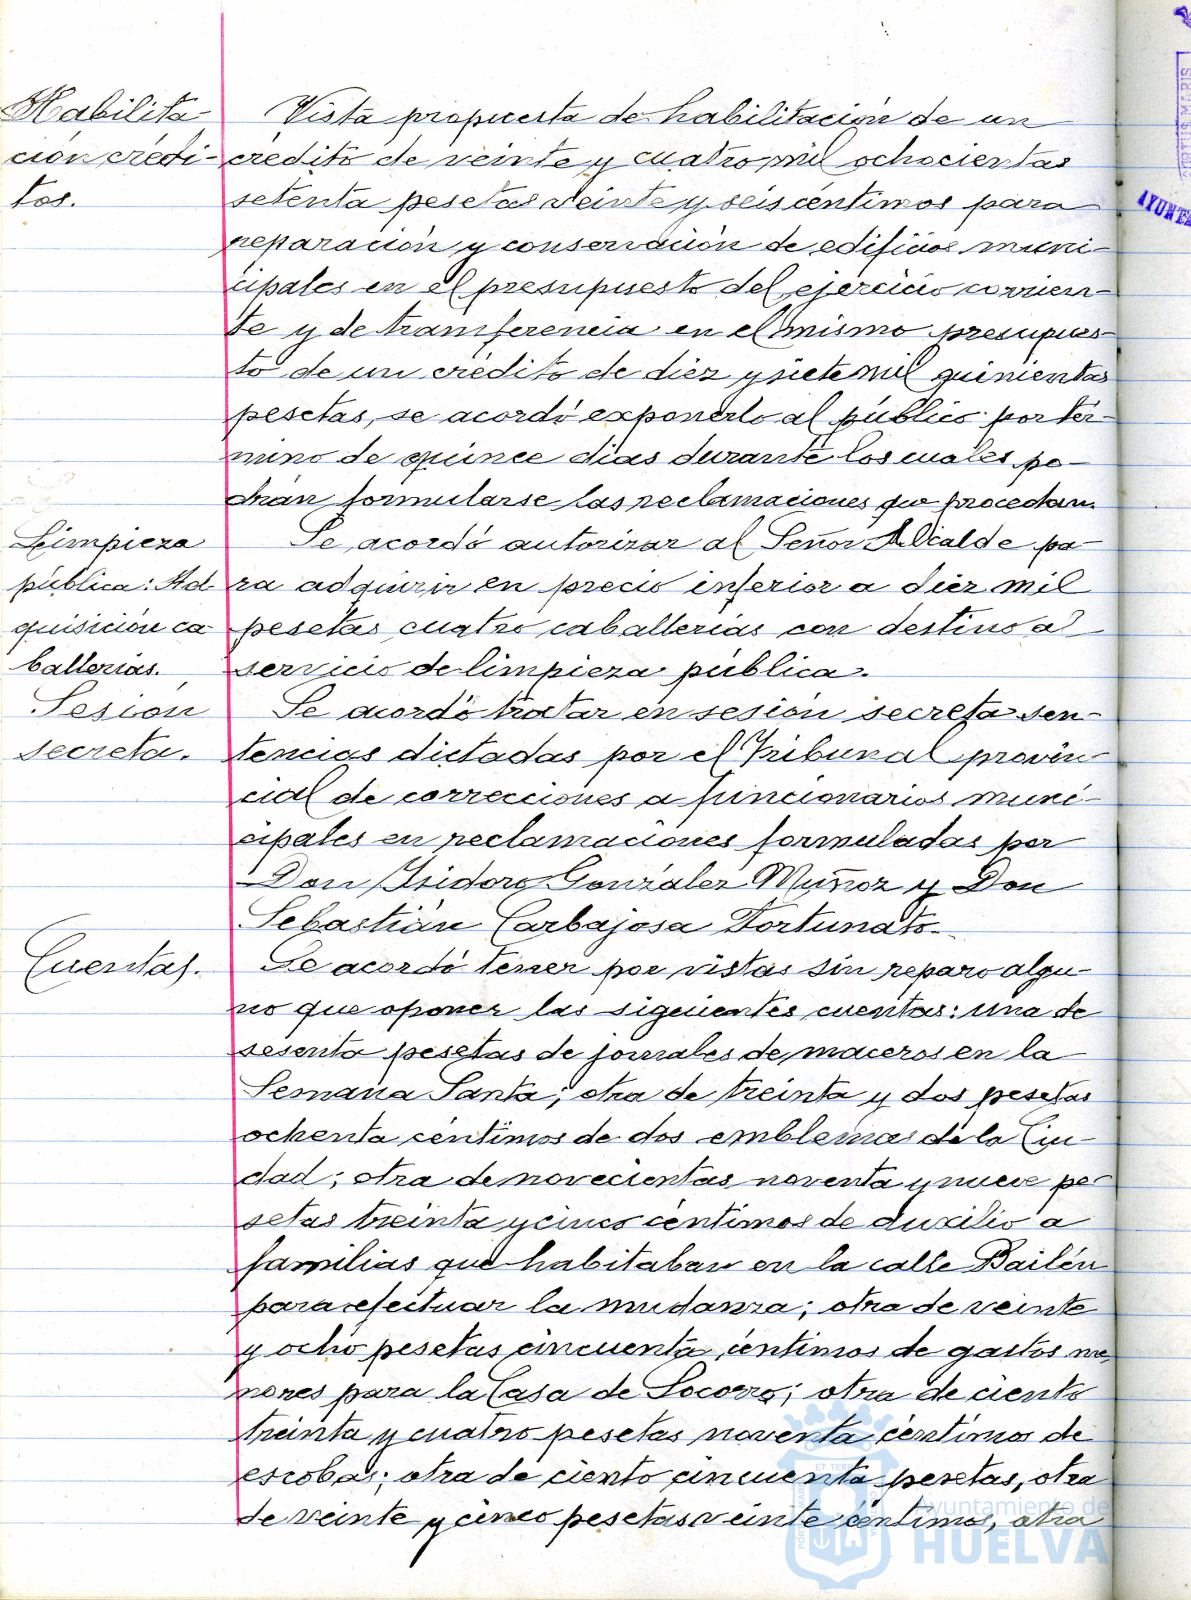 Habilita-
ción crédi-
tos.
Vista propuesta de habilitación de un
crédito de veinte y cuatro mil ochocientas
setenta pesetas veinte y seis céntimos para
reparación y conservación de edificios muni-
cipales en el presupuesto del ejercicio corrien-
te y de transferencia en el mismo presupues-
to de un crédito de diez y siete mil quinientas
pesetas, se acordó exponerlo al público por tér-
mino de quince dias durante los cuales po-
drán formularse las reclamaciones que procedan.
Limpieza
pública: Ad
quisición ca
ballerías.
Se acordó autorizar al Señor Alcalde pa-
ra adquirir en precio inferior a diez mil
pesetas cuatro caballerías con destino al
servicio de limpieza pública.
Sesión
secreta.
Se acordó tratar en sesión secreta sen-
tencias dictadas por el Tribunal provin-
cial de correcciones a funcionarios muni-
cipales en reclamaciones formuladas por
Don Isidoro González Muñoz y Don
Sebastián Carbajosa Fortunato.
Cuentas.
Se acordó tener por vistas sin reparo algu-
no que oponer las siguientes cuentas: una de
sesenta pesetas de jornales de maceros en la
Semana Santa; otra de treinta y dos pesetas
ochenta céntimos de dos emblemas de la Ciu-
dad; otra de novecientas noventa y nueve pe-
setas treinta y cinco céntimos de auxilio a
familias que habitaban en la calle Bailén
para efectuar la mudanza; otra de veinte
y ocho pesetas cincuenta céntimos de gastos me-
nores para la Casa de Socorro; otra de ciento
treinta y cuatro pesetas noventa céntimos de
escobas; otra de ciento cincuenta pesetas, otra
de veinte y cinco pesetas veinte céntimos, otra
Ayuntamiento de
HUELVA
PORTUS MARIS
AYUNTA